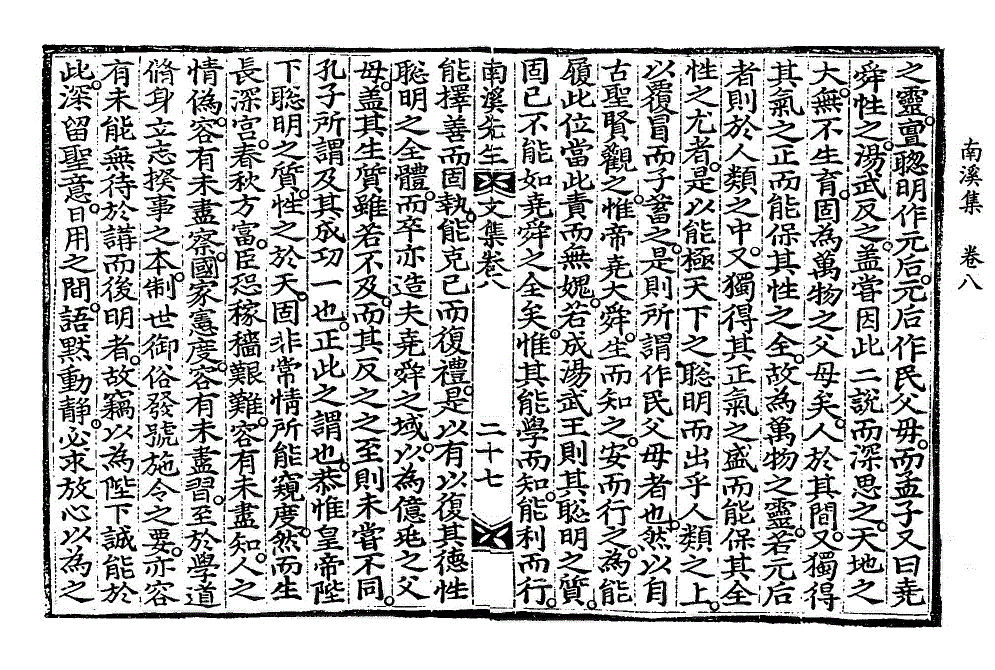 南溪集　卷八
之靈。亶聰明作元后。元后作民父母。而孟子又曰堯
舜性之。湯武反之。盖嘗因此二說而深思之。天地之
大。無不生育。固為萬物之父母矣。人於其間。又獨得
其氣之正而能保其性之全。故為萬物之靈。若元后
者則於人類之中。又獨得其正氣之盛而能保其全
性之尤者。是以能極天下之聰明而出乎人類之上。
以覆冒而子畜之。是則所謂作民父母者也。然以自
古聖賢觀之。惟帝堯大舜。生而知之。安而行之。為能
履此位當此責而無媿。若成湯武王則其聡明之質。
固已不能如堯舜之全矣。惟其能學而知。能利而行。
南溪先生文集卷八
二十七
能擇善而固執。能克己而復禮。是以有以復其德性
聡明之全體。而卒亦造夫堯舜之域。以為億兆之父
母。盖其生質雖若不及。而其反之之至則未嘗不同。
孔子所謂及其成功一也。正此之謂也。恭惟皇帝陛
下聡明之質。性之於天。固非常情所能窺度。然而生
長深宫。春秋方富。臣恐稼穡艱難。容有未盡知。人之
情僞。容有未盡察。國家憲度。容有未盡習。至於學道
脩身立志揆事之本。制世御俗發號施令之要。亦容
有未能無待於講而後明者。故竊以為陛下誠能於
此。深留聖意。日用之間。語默動静。必求放心以為之